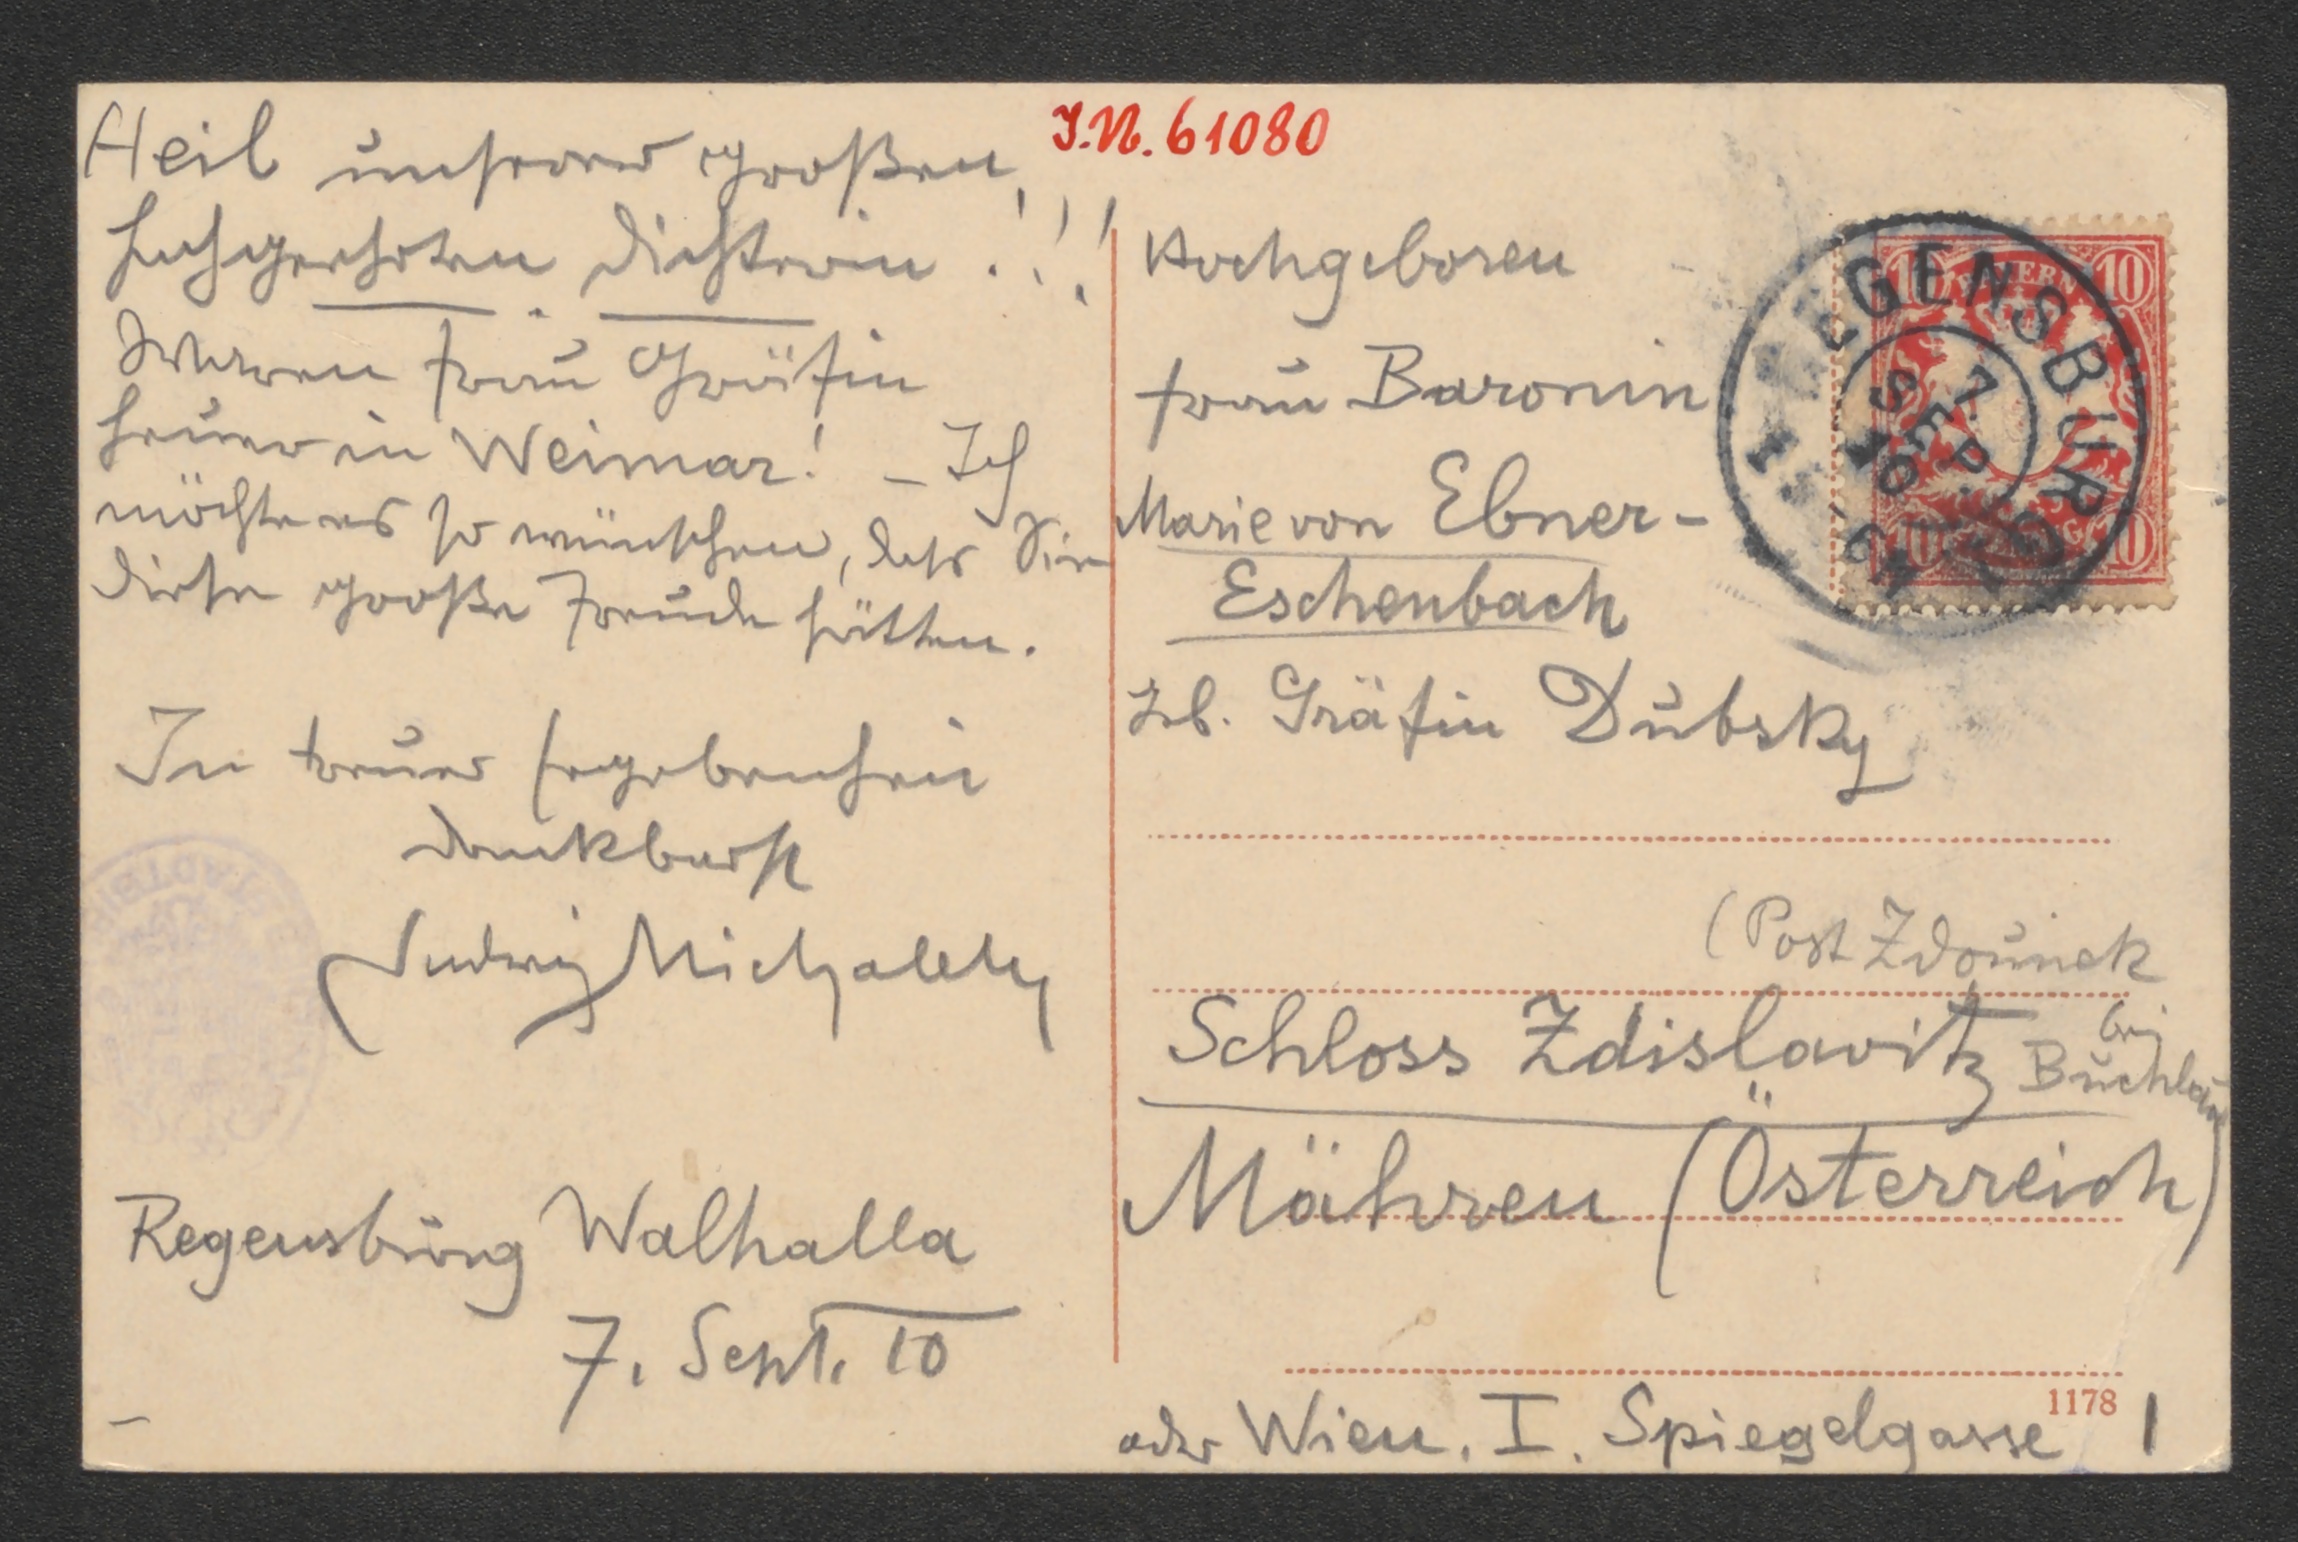 Heil unserer großen,
hochgeehrten Dichterin!!!
Waren Frau Gräfin
heuer in Weimar! – Ich
möchte es so wünschen, dass Sie
diese große Freude hätten.
In treuer Ergebenheit
dankbarst
Ludwig Michalek
Regensburg Walhalla
7. Sept. 10
J.N. 61080
Hochgeboren
Frau Baronin
Marie von Ebner-
Eschenbach
geb. Gräfin Dubsky
(Post Zdounek
Schloss Zdislavitz bei
Buchlau)
Mähren (Österreich)
1178
oder Wien. I. Spiegelgasse 1
BAYERN
10 10
10 10
REGENSBURG
7
SEP.
10